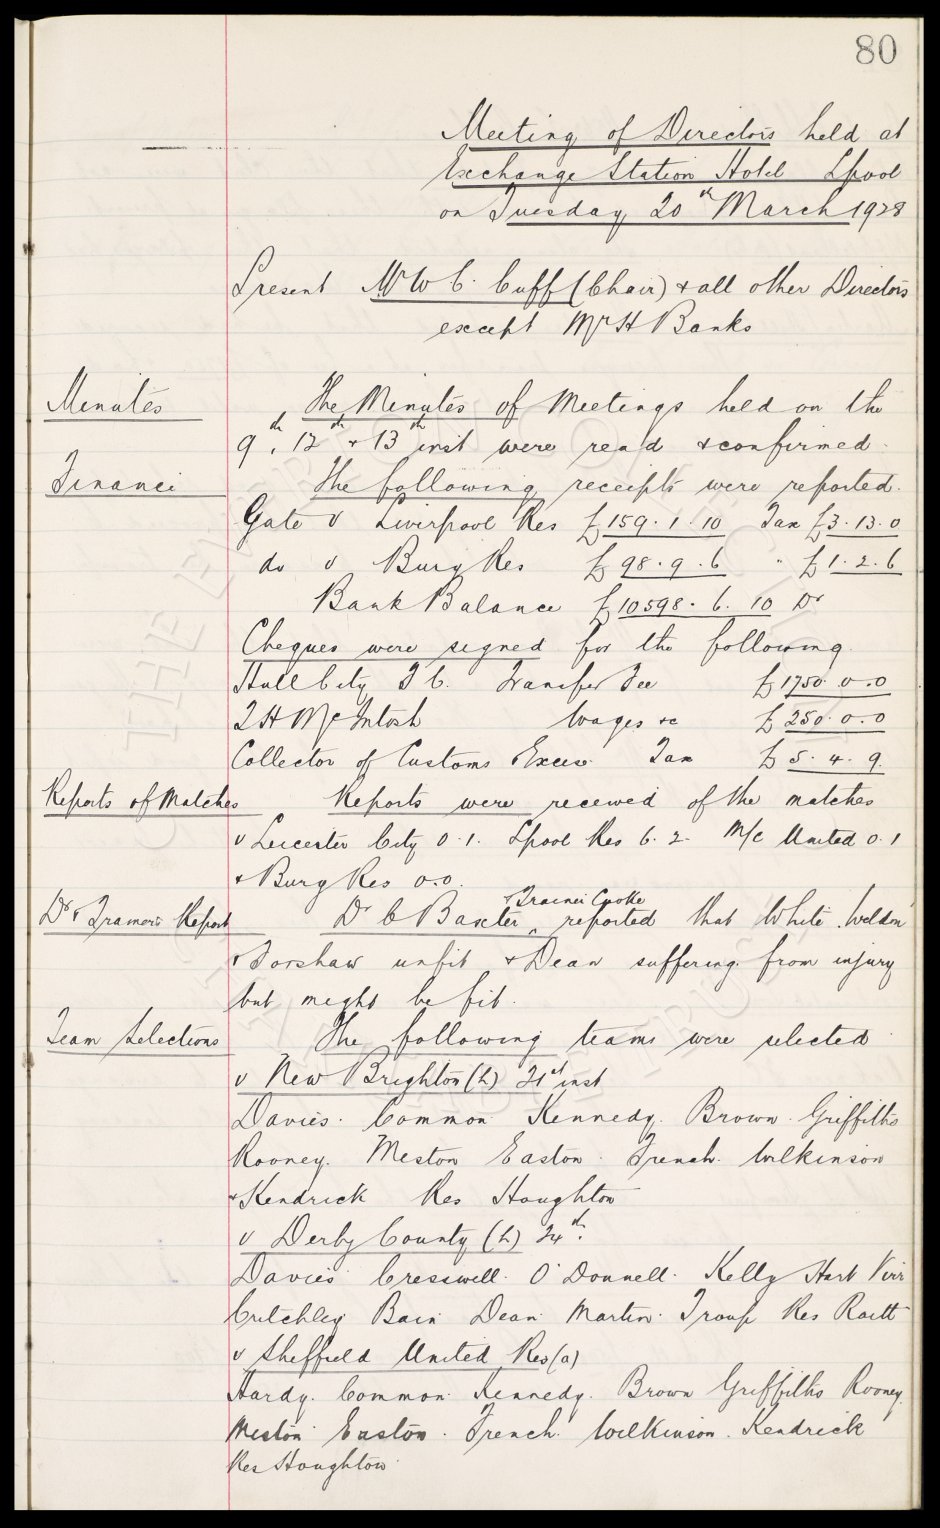 80
Meeting of Directors held at
Exchange Station Hotel Lpool
on Tuesday 20th March 1928
Present Mr W C. Cuff (Chair) & all other Directors
except Mr H Banks
Minutes The Minutes of Meetings held on the
9th, 12th & 13th inst were read & confirmed.
Finance The following receipts were reported.
Gate v Liverpool Res £159.1.10 Tax £3.13.0
do v Bury Res £98.9.6 " £1.2.6
Bank Balance £10598.6.10 Dr
Cheques were signed for the following.
Hull City F C. Transfer Fee £1750.0.0
T H McIntosh Wages &c £250.0.0
Collector of Customs Excise Tax £5.4.9.
Reports of Matches Reports were received of the matches
v Leicester City 0.1. Lpool Res 6.2. M/c United 0.1
& Bury Res 0.0.
Dr & Trainers Report Dr C Baxter & Trainer Cooke reported that White. Weldon
& Forshaw unfit & Dean suffering from injury
but might be fit.
Team Selections The following teams were selected
v New Brighton (h) 21st inst
Davies. Common. Kennedy. Brown. Griffiths
Rooney. Meston Easton. French. Wilkinson
& Kendrick Res Houghton
v Derby County (h) 24th.
Davies Cresswell. O'Donnell. Kelly Hart Virr
Critchley Bain Dean Martin. Troup Res Raitt
v Sheffield United Res (a)
Hardy. Common. Kennedy. Brown Griffiths Rooney.
Meston Easton. French. Wilkinson. Kendrick
Res Houghton